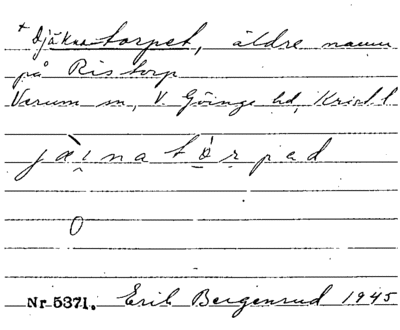 + Djäknatorpet, äldre namn
på Ristorp
Verum sn, V. Göinge hd, Krist. l
jæ̀ı̣natȯ́rpad
0
Nr 5371. Erik Bergenrud 1945